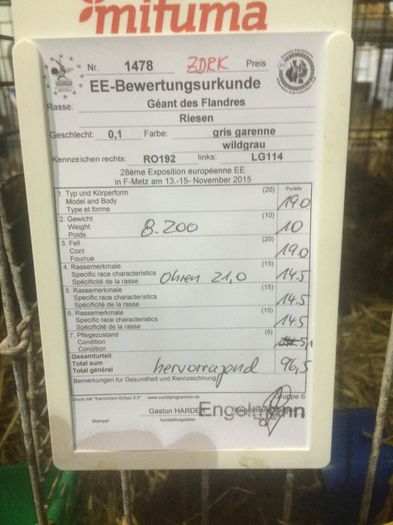 mifuma
Nr. 1478 ZDRK Preis
EE-Bewertungsurkunde
Rasse: Géant des Flandres
Riesen
Geschlecht: 0,1 Farbe: gris garenne
wildgrau
Kennzeichen rechts: RO192 links: LG114
28ème Exposition européenne EE
in F-Metz am 13.-15- November 2015
1. Typ und Körperform (20) Punkte
Model and Body
Type et forme 19.0
2. Gewicht (10)
Weight 8.200 10
Poids
3. Fell (20)
Coat
Fourrue 19.0
4. Rassemerkmale (15)
Specific race characteristics Ohren 21,0 14.5
Spécificité de la rasse
5. Rassemerkmale (15)
Specific race characteristics 14.5
Spécificité de la rasse
6. Rassemerkmale (15)
Specific race characteristics 14.5
Spécificité de la rasse
7. Pflegezustand (5)
Condition
Condition
Gesamturteil
Total sum hervorragend 96,5
Total général
Bemerkungen für Gesundheit und Kennzeichnung
Druck mit "Kaninchen-Schau 9.5" www.zuchtprogramme.de Gruppe 6
Gaston HARDER Engelmann
Stempel Ausstellungsleiter